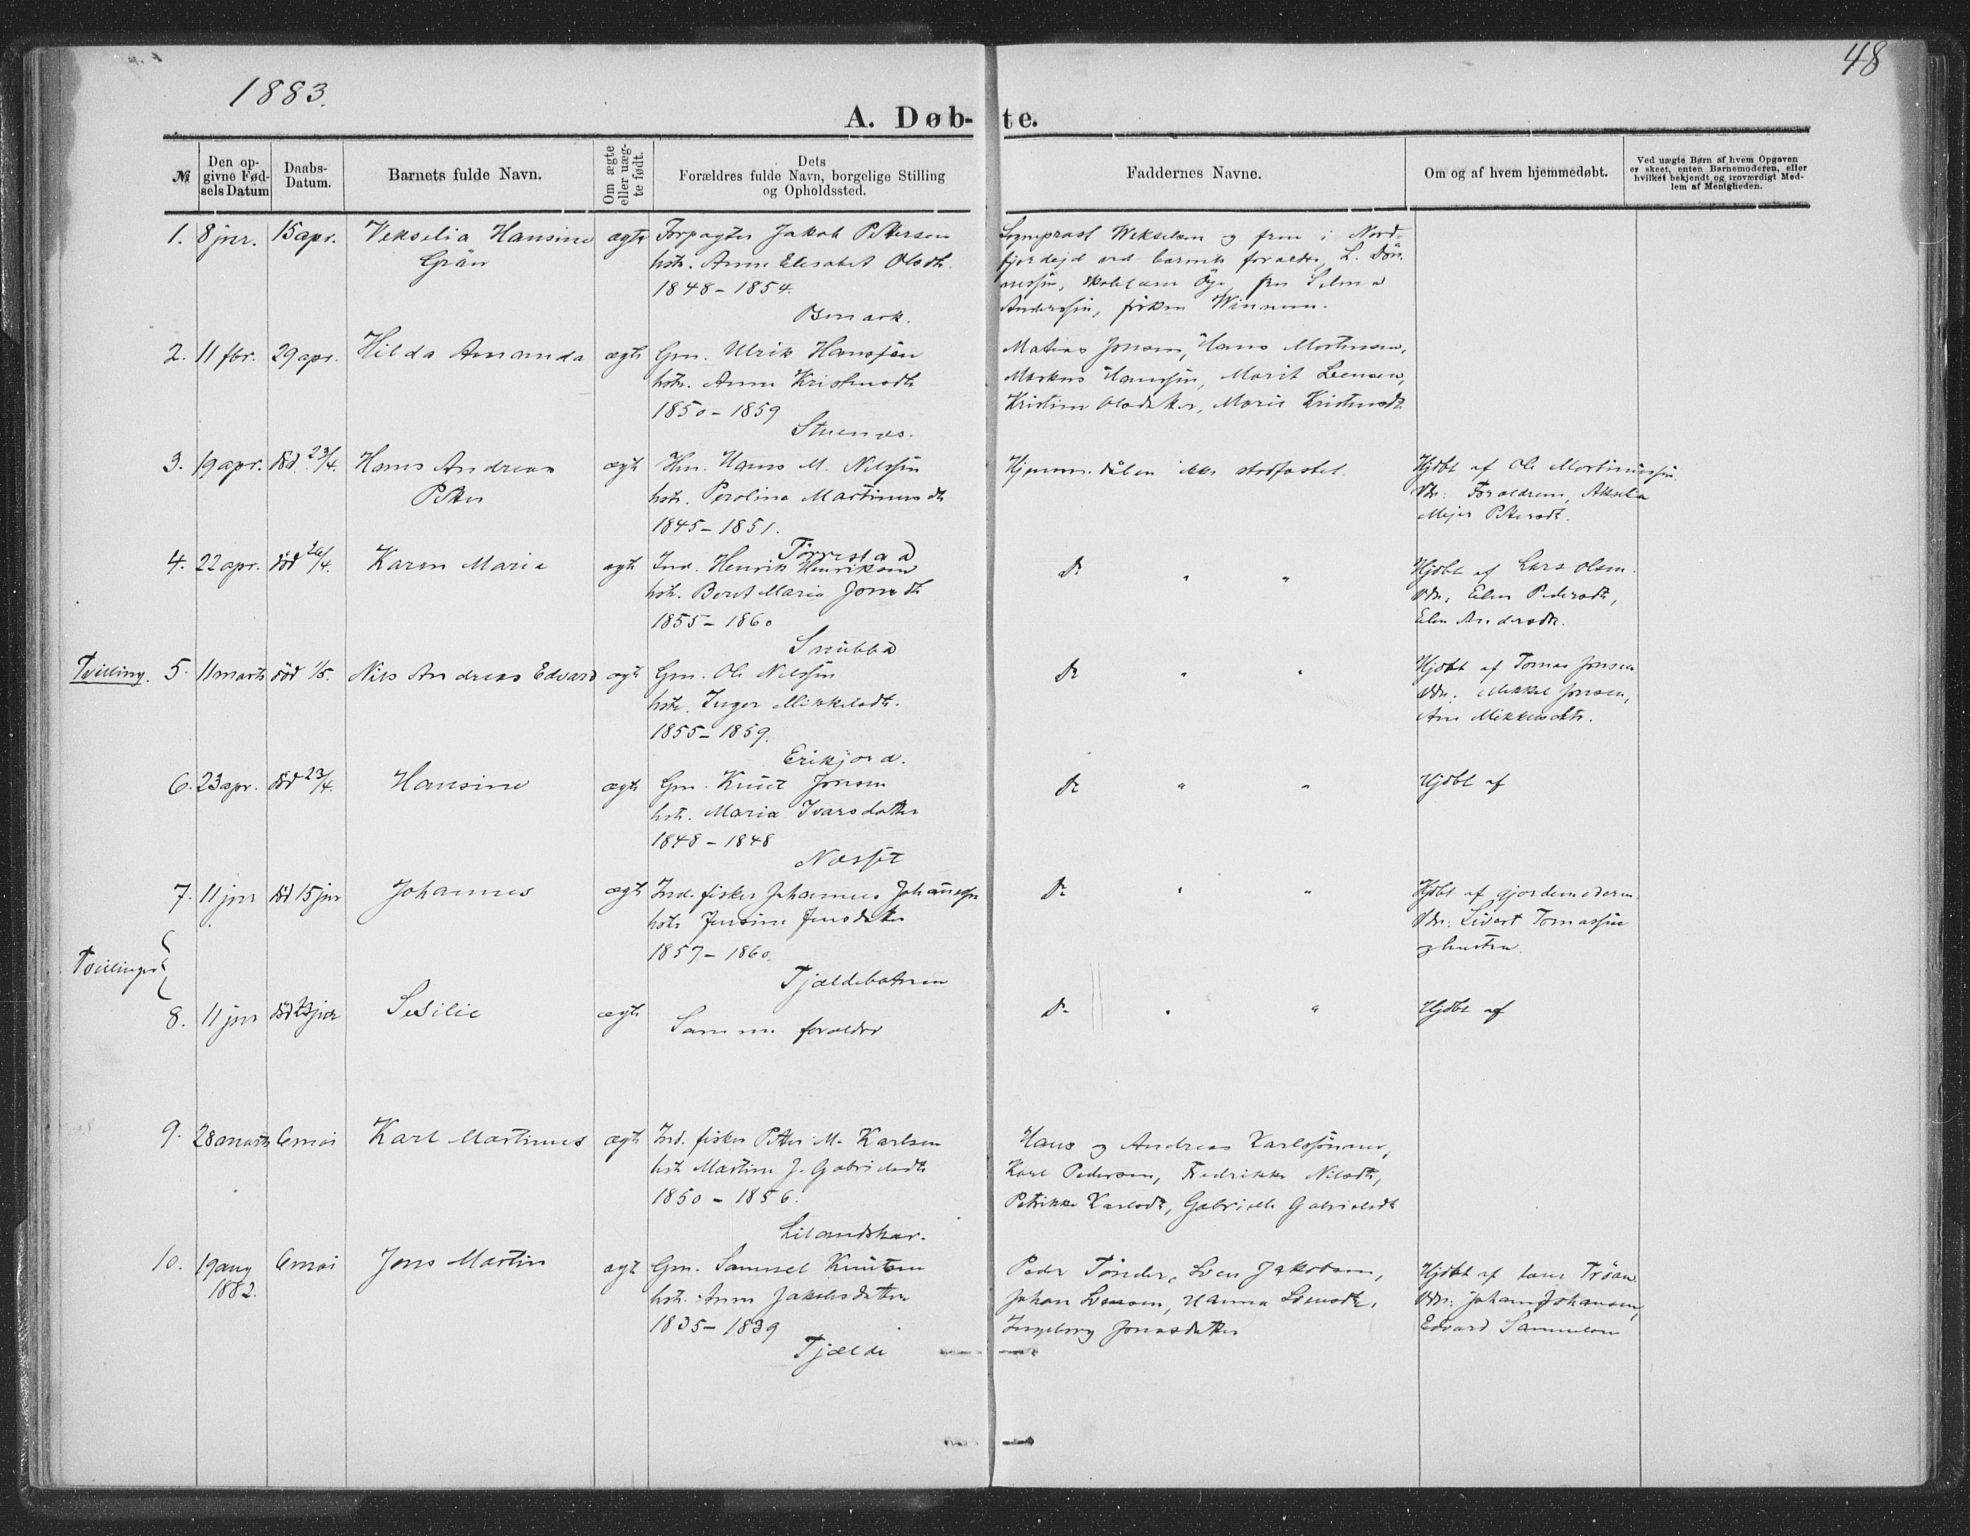 48
1883.
A. Døbte.
№
Den opgivne Fødsels Datum
Daabs-Datum.
Barnets fulde Navn.
Om ægte eller uægte født.
Dets Forældres fulde Navn, borgelige Stilling og Opholdssted.
Faddernes Navne.
Om og af hvem hjemmedøbt.
Ved uægte Børn af hvem Opgaven er skeet, enten Barnemoderen, eller hvilket bekjendt og troværdigt Medlem af Menigheden.
1. 8 jnr. 15 apr. Vekselia Hansine ægte Forpagter Jakob Petersen
Grån hstr. Anne Elisabet Olsdtr.
1848 - 1854.
Sogneprest Wekselsen og frue i Nord-
fjordejd ved barnets forældre, L.
skolelærer Öye, fru Selma
Anderssen, frøken Winnem.
2. 11 fbr. 29 apr. Hilda Amanda ægte Gm. Ulrik Hanssen
hstr. Anne Kristensdtr
1850 - 1859
Stuenes.
Matias Jonsen, Hans Mortensen,
Markus Hanssen, Marit
Kristine Olsdatter, Marie Kristensdtr
3. 19 apr. död 23/4. Hans Andreas ægte Hm. Hans M. Nilssen
Peter hstr. Peroline Martinusdtr
1845 - 1851.
Törrestad
Hjemmedåben ikke stadfæstet.
Hjdbt af Ole Martinussen
Vdr: Foræeldrene,
Mejer Petersdtr.
4. 22 apr. död 26/4. Karen Marie ægte Ind. Henrik Henriksen
hstr. Beret Maria Jonsdtr
1855 - 1860
Snubba
Do " "
Hjdbt af Lars Olsen.
Vdr. Elen Pedersdtr,
Elen Andersdtr.
Tvilling. 5. 11 marts död 1/5. Nils Andreas Edvard ægte Gm. Ole Nilssen
hstr. Inger Mikkelsdtr.
1855 - 1859.
Erikjord.
Do " "
Hjdbt af Tomas Jensen
Vdr: Mikkel Jonsen,
Ane Mikkelsdtr.
6. 23 apr. död 23/4. Hansine ægte Gm. Knut Jonsen
hstr. Maria Ivarsdatter
1848 - 1848
Næsset
Do " "
Hjdbt af
7. 11 jnr död 15 jnr Johannes ægte Ind. fisker Johannes Johansen
hstr Jensine Jensdatter
1857 - 1860
Tjældebotnen
Do " "
Hjdbt af gjordemoderen
Vdr: Sivert Tomassen
og hustru.
Tvillinger
8. 11 jnr död 23 jnr Sesilie ægte Samme forældre
Do " "
Hjdbt af
9. 28 marts 6 mai Karl Martinus ægte Ind. fisker Peter M. Karlsen
hstr Martine J. Gabrielsdtr
1850 - 1856.
Lilandskar.
Hans og Andreas Karlssönner,
Karl Pedersen, Fredrikke Nilsdtr,
Petrikke Karlsdtr, Gabrielle Gabrielsdtr
10. 19 aug 6 mai Jens Martin ægte Gm. Samuel Knutsen
1882. hstr. Anne Jakobsdatter
1835 - 1839
Tjælde
Peder Tönder, Sven Jakobsen,
Johan Svensen, Hanna Svensdtr,
Ingeborg Jonasdatter
Hjdbt af lærer Tröan
Vdr: Johan Johansen,
Edvard Samuelsen